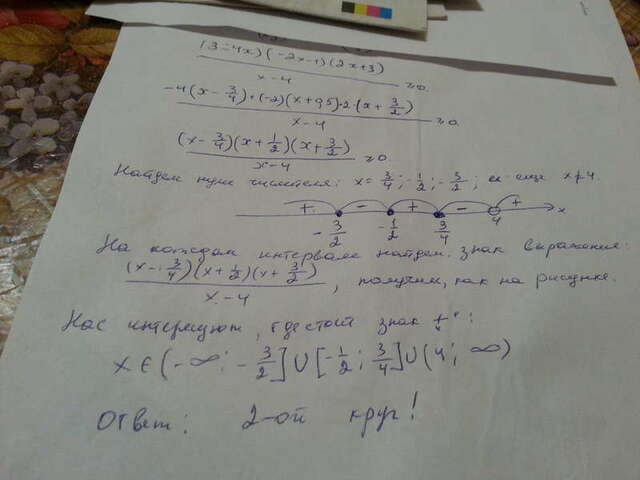 (3-4x)(-2x-1)(2x+3) / x-4 ≥0
-4(x-3/4)·(-2)(x+0,5)·2·(x+3/2) / x-4 ≥0
(x-3/4)(x+1/2)(x+3/2) / x-4 ≥0
Найдем нули числителя: x=3/4; -1/2; -3/2; еще x≠4.
+ - + - + x
-3/2 -1/2 3/4 4
На каждом интервале найдем знак выражения:
(x-3/4)(x+1/2)(x+3/2) / x-4, получим, как на рисунке.
Нас интересуют, где стоит знак „+":
x∈(-∞; -3/2]∪[-1/2; 3/4]∪(4; ∞)
Ответ: 2-ой круг!